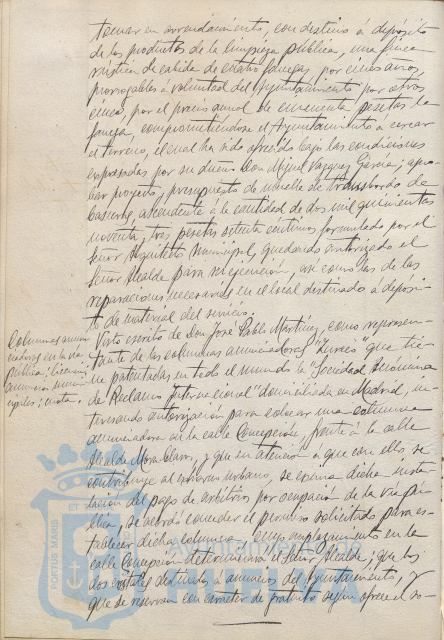 tomar en arrendamiento, con destino á depósito
de los productos de la limpieza pública, una finca
rústica de cabida de cuatro fanegas, por cinco años,
prorrogables á voluntad del Ayuntamiento por otros
cinco, por el precio anual de cincuenta pesetas la
fanega, comprometiéndose el Ayuntamiento á cercar
el terreno, el cual ha sido ofrecido bajo las condiciones
expresadas por su dueño Don Miguel Vazquez Garcia; apro-
bar proyecto, presupuesto de muelle de transbordo de
basuras, ascendente á la cantidad de dos mil quinientas
noventa y tres pesetas setenta centimos formulado por el
Señor Arquitecto Municipal, quedando autorizado el
Señor Alcalde para su ejecución, así como las de las
reparaciones necesarias en el local destinado a deposi-
to de material del servicio.
Columnas anun-
ciadoras en la via
pública; licencia
anuncios muni-
cipales;
Visto escrito de Don José Pablo Martínez, como represen-
tante de las columnas anunciadoras "que tie-
ne patentadas en todo el mundo la "Sociedad Anónima
de Reclamo Internacional" domiciliada en Madrid, in-
teresando autorización para colocar una columna
anunciadora en la calle Concepción, frente á la calle
Alcalde Mora Claro, y que en atención a que con ello, se
contribuye al ornato urbano, se exima dicha insta-
lación del pago de arbitrios por ocupación de la vía pú-
blica, se acordó conceder el permiso solicitado para es-
tablecer dicha columna, cuyo emplazamiento en la
calle Concepción determinará el Señor Alcalde; que los
dos destinados á anuncios del Ayuntamiento, y
que se reservan con carácter de gratuito según ofrece el so-
PORTUS MARIS ET